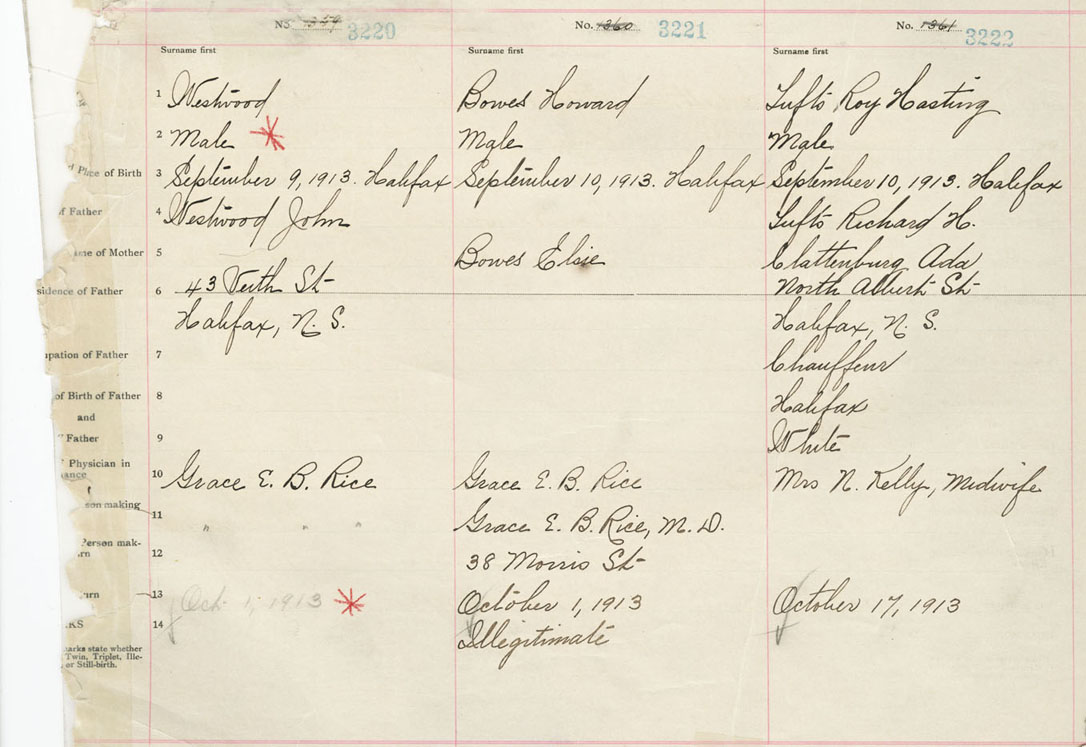 No. 1359 3220 No. 1360 3221 No. 1361 3222
Surname first Surname first Surname first
1 Westwood Bowes Howard Tufts Roy Hasting
2 Male Male Male
Place of Birth 3 September 9, 1913. Halifax September 10, 1913. Halifax September 10, 1913. Halifax
of Father 4 Westwood John Tufts Richard H.
me of Mother 5 Bowes Elsie Clattenburg Ada
sidence of Father 6 43 Veith St North Albert St
Halifax, N. S. Halifax, N. S.
upation of Father 7 Chauffeur
of Birth of Father 8 Halifax
and
Father 9 White
Physician in 10 Grace E. B. Rice Grace E. B. Rice Mrs N. Kelly, Midwife
ance
son making 11 " " " Grace E. B. Rice, M. D.
Person mak-
rn 12 38 Morris St
urn 13 Oct 1, 1913 October 1, 1913 October 17, 1913
KS 14 Illegitimate
arks state whether
Twin, Triplet, Ille-
or Still-birth.